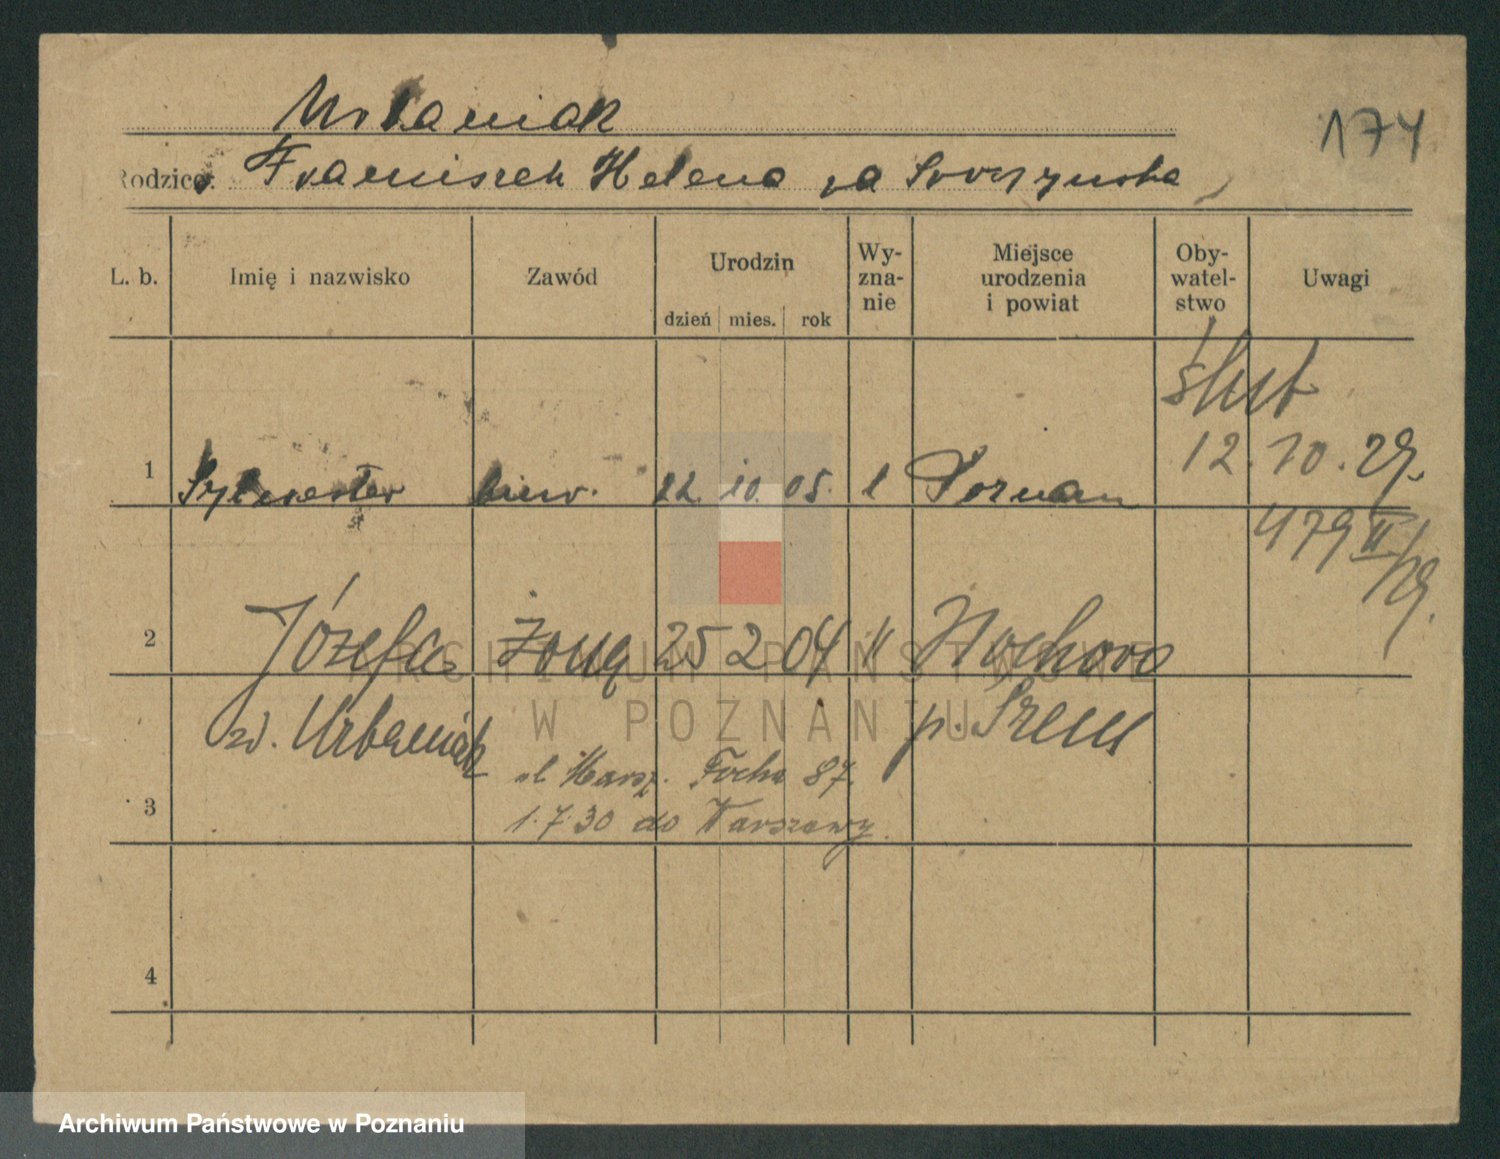 Urbaniak
174
Rodzice: Franciszek Helena za
L. b.
Imię i nazwisko
Zawód
Urodzin
dzień mies. rok
Wy-
zna-
nie
Miejsce
urodzenia
i powiat
Oby-
watel-
stwo
Uwagi
ślub
12.10.29.
1 Sylwester 22. 10. 05. k Poznan
479 II/29.
2 Józefa żona 25 2 04 k
zd. Urbaniak p. Śrem
ul Marsz. Focha 87.
3
1.7.30 do Warszawy.
4
ARCHIWUM PAŃSTWOWE
W POZNANIU
Archiwum Państwowe w Poznaniu